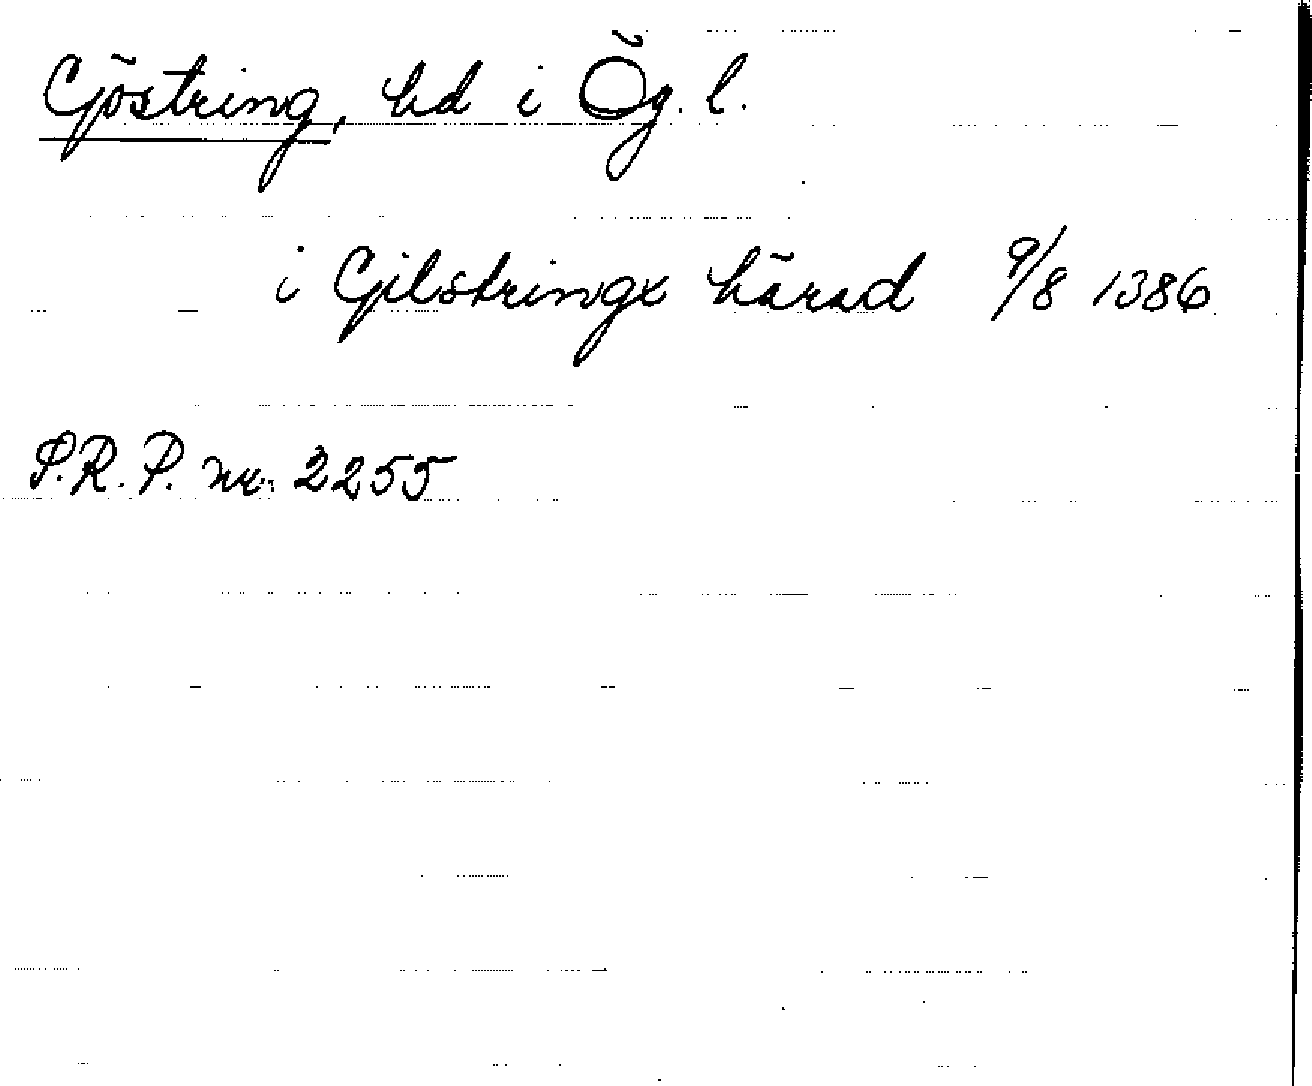 Göstring, hd i Ög. l.
i Gilstringx härad 9/8 1386
S.R.P. nr. 2255